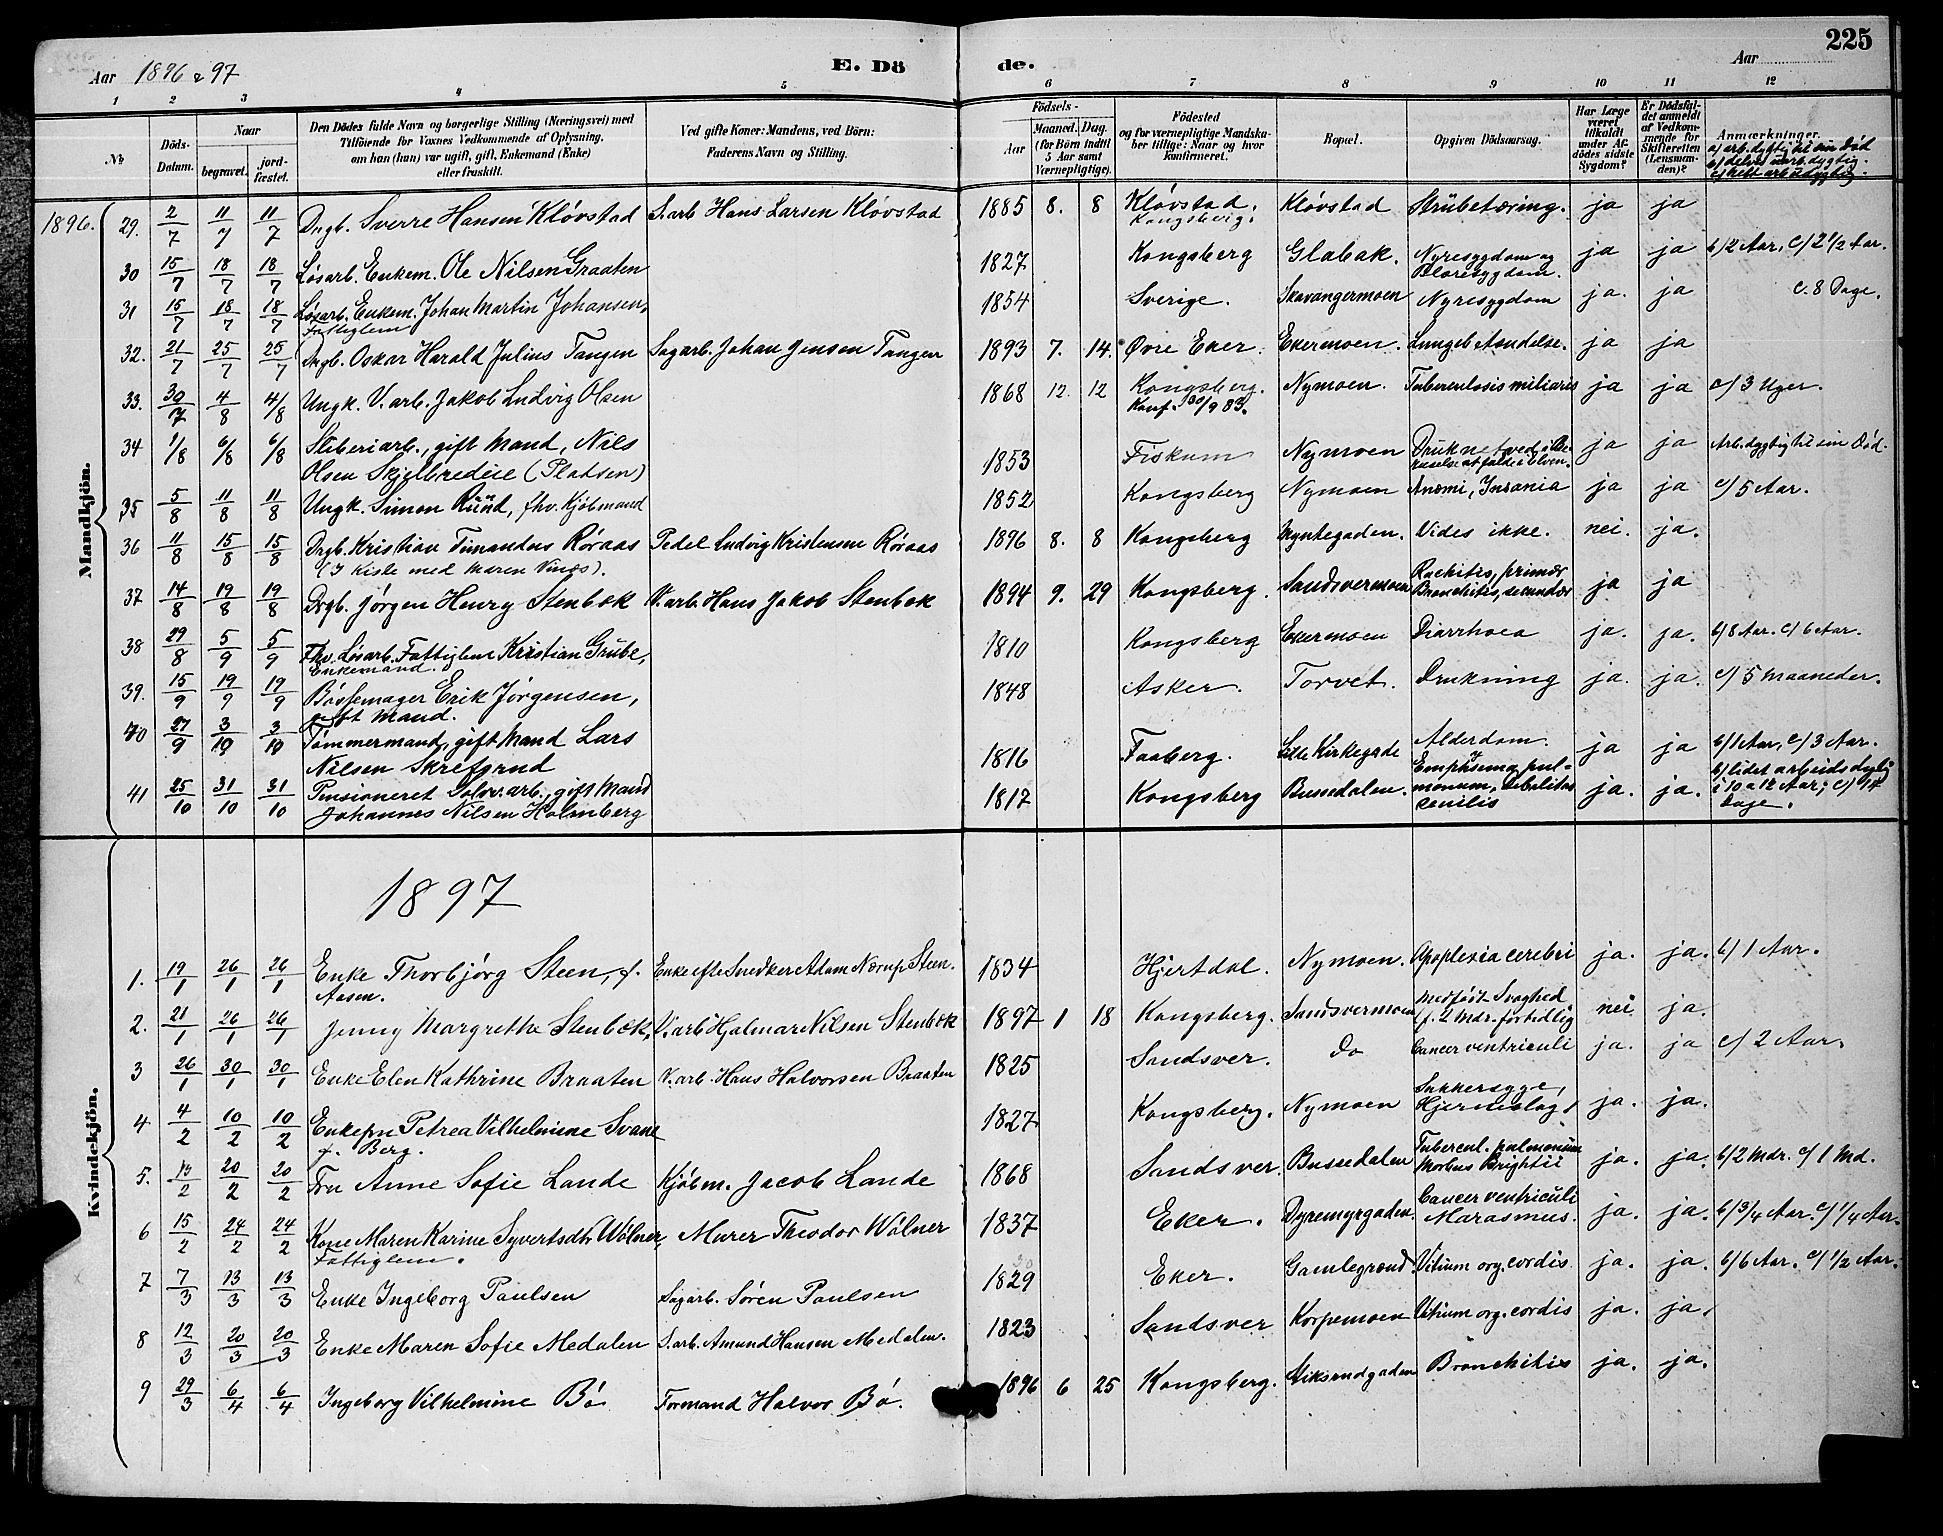 225
Aar 1896 & 97
E. Dö
de.
Aar
1 2 3 4 5 6 7 8 9 10 11 12
№
Döds-Datum.
Naar
begravet.
jord-fæstet.
Den Dödes fulde Navn og borgerlige Stilling (Næringsvei) med
Tilföiende for Voxnes Vedkommende af Oplysning,
om han (hun) var ugift, gift, Enkemand (Enke)
eller fraskilt.
Ved gifte Koner: Mandens, ved Börn:
Faderens Navn og Stilling.
Födsels-
Aar
Maaned. Dag.
(for Börn indtil
5 Aar samt
Værnepligtige).
Födested
og for værnepligtige Mandska-
ber tillige: Naar og hvor
konfirmeret.
Bopæl.
Opgiven Dödsaarsag.
Har Læge
været
tilkaldt
under Af-
dödes sidste
Sygdom?
Er Dödsfal-
det anmeldt
af Vedkom-
mende for
Skifteretten
(Lensman-
den)?
Anmærkninger.
a/ arb.dygtig til sin Död
b/ delvis uarb.dygtig.
c/ helt arb.udygtig.
Mandkjön.
1896. 29. 2/7 11/7 11/7 Dngb. Sverre Hansen Kløvstad S.arb. Hans Larsen Kløvstad 1885 8. 8 Kløvstad. Kongsberg. Kløvstad Strübetæring. ja ja
30 15/7 18/7 18/7 Løsarb. Enkem. Ole Nilsen Graaten 1827 Kongsberg Glabak. Nyresygdom og Blæresygdom. ja ja b/2 Aar, c/2 1/2 Aar.
31 15/7 18/7 18/7 Løsarb. Enkem. Johan Martin Johansen, Fattiglem 1854 Sverige. Skavangermoen Nyresygdom ja. ja c. 8 Dage.
32. 21/7 25/7 25/7 Dngb. Oskar Harald Julius Tangen Sagarb. Johan Jensen Tangen 1893 7. 14. Øvre Eker. Ekermoen. Lungebetændelse. ja ja
33. 30/7 4/8 4/8 Ungk. V.arb. Jakob Ludvig Olsen 1868 12. 12 Kongsberg. Konf. 30/9 83. Nymoen. Tuberculosis miliaris ja ja c/ 3 Uger.
34 1/8 6/8 6/8 Sliberiarb., gift Mand, Nils
Olsen Skjelbredeie (Pladsen) 1853 Fiskum Nymoen Druknet ved i Be-
ruselse at falde i Elven. ja ja Arb.dygtig til sin Död.
35 5/8 11/8 11/8 Ungk. Simon Rüud, fhv. Kjøbmand 1852 Kongsberg Nymoen Anæmi, Insania ja ja c/ 5 Aar.
36 11/8 15/8 15/8 Dngb. Kristian Timandus Røraas Pedel Ludvig Kristensen Røraas 1896 8. 8 Kongsberg Myntegaden. Vides ikke. nei. ja.
(I Kiste med Maren Vinæs).
37 14/8 19/8 19/8 Dngb. Jørgen Henry Stenbæk V.arb. Hans Jakob Stenbæk 1894 9. 29 Kongsberg. Sandsvermoen Rachitis, primær
Bronchitis, secundær ja ja
38 29/8 5/9 5/9 Fhv. Løsarb. Fattiglem Kristian Grube,
Enkemand. 1810 Kongsberg Ekermoen Diarrhoea ja. ja. b/8 Aar. c/ 6 Aar.
39. 15/9 19/9 19/9 Bøssemager Erik Jørgensen,
gift Mand. 1848 Asker. Torvet. Drukning ja. ja. c/ 5 Maaneder.
40 27/9 3/10 3/10 Tømmermand, gift Mand Lars
Nilsen Skrefsrud 1816 Faaberg. Lille Kirkegade Alderdom. ja ja b/1 Aar, c/ 3 Aar.
41 25/10 31/10 31/10 Pensioneret Sølvv.arb., gift Mand
Johannes Nilsen Holmberg 1817 Kongsberg Bussedalen. Emphysema pul-
monum, Debilitas
senilis ja. ja. b/ lidet arbeidsdygtig
i 10 a 12 Aar; c/ 14
Dage.
1897
Kvindekjön.
1. 19/1 26/1 26/1 Enke Thorbjørg Steen, f.
Aasen. Enke efter Snedker Adam Nærup Steen. 1834 Hjertdal. Nymoen. Apoplexia cerebri ja. ja. b/ 1 Aar.
2. 21/1 26/1 26/1 Jenny Margrethe Stenbæk, V.arb. Hjalmar Nilsen Stenbæk 1897 1 18 Kongsberg. Sandsvermoen Medfödt Svaghed
(f. 2 Mdr. fortidlig nei ja.
3 26/1 30/1 30/1 Enke Elen Kathrine Braaten V.arb. Hans Halvorsen Braaten 1825 Sandsver. do Cancer ventriculi ja. ja c/ 2 Aar.
4 4/2 10/2 10/2 Enkefru Petrea Vilhelmine Svane
f. Berg. 1827 Kongsberg. Nymoen Sukkersyge,
Hjerneslag, ja. ja.
5. 13/2 20/2 20/2 Fru Anne Sofie Lande Kjøbm. Jacob Lande 1868 Sandsver Bussedalen Tubercul. pulmonum
Morbus Brightii ja. ja. b/2 Mdr. c/ 1 Md.
6 15/2 24/2 24/2 Kone Maren Karine Syvertsdtr Wølner,
Fattiglem. Murer Theodor Wølner 1837 Eker. Dyremyrgaden. Cancer ventriculi
Marasmus. ja. ja. b/ 3/4 Aar. c/ 1/4 Aar.
7 7/3 13/3 13/3 Enke Ingeborg Paulsen Sagarb. Søren Paulsen 1829 Eker. Gamlegrend Vitium org. cordis. ja. ja. b/6 Aar. c/ 1/2 Aar.
8 12/3 20/3 20/3 Enke Maren Sofie Medalen S.arb. Amund Hansen Medalen. 1823 Sandsver Korpemoen Vitium org. cordis ja. ja.
9 29/3 6/4 6/4 Ingeborg Vilhelmine Bö Formand Halvor Bö. 1896 6 25 Kongsberg. Bronchitis ja. ja.